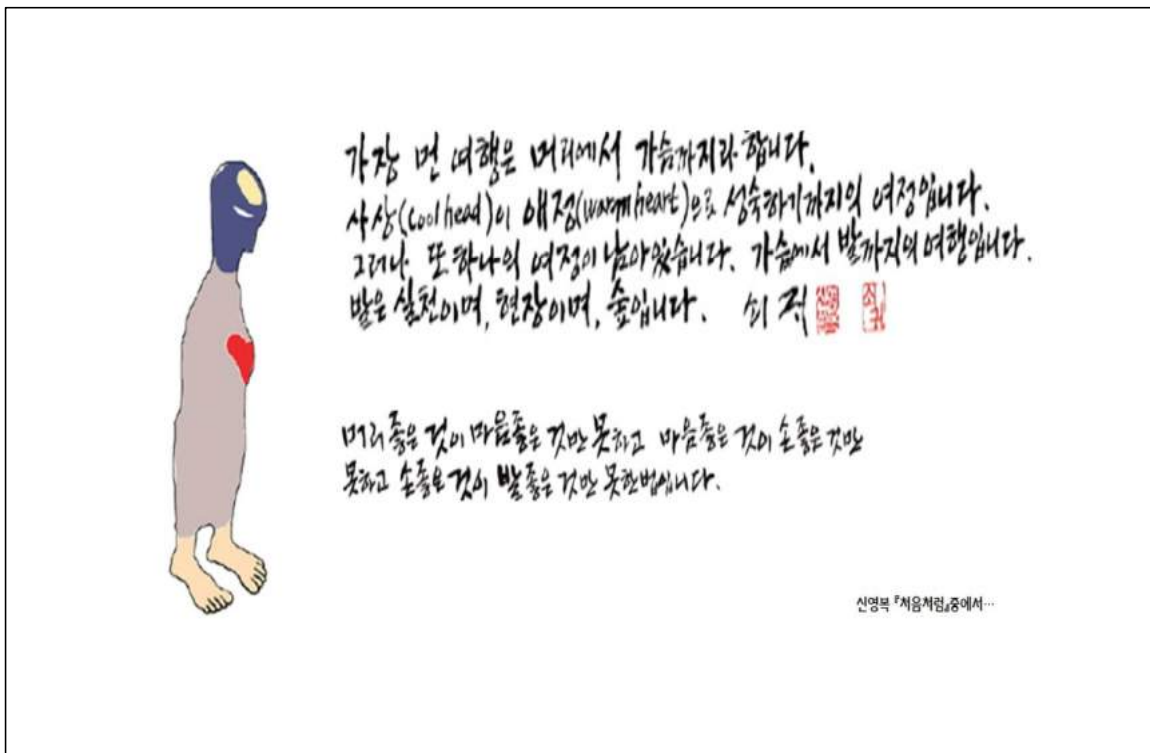 가장 먼 여행은 머리에서 가슴까지라 합니다.
사상(cool head)이 애정(warm heart)으로 성숙하기까지의 여정입니다.
그러나 또 하나의 여정이 남아있습니다. 가슴에서 발까지의 여행입니다.
발은 실천이며, 현장이며, 숲입니다. 쇠귀
머리 좋은 것이 마음 좋은 것만 못하고 마음 좋은 것이 손 좋은 것만
못하고 손 좋은 것이 발 좋은 것만 못한 법입니다.
신영복 『처음처럼』중에서…